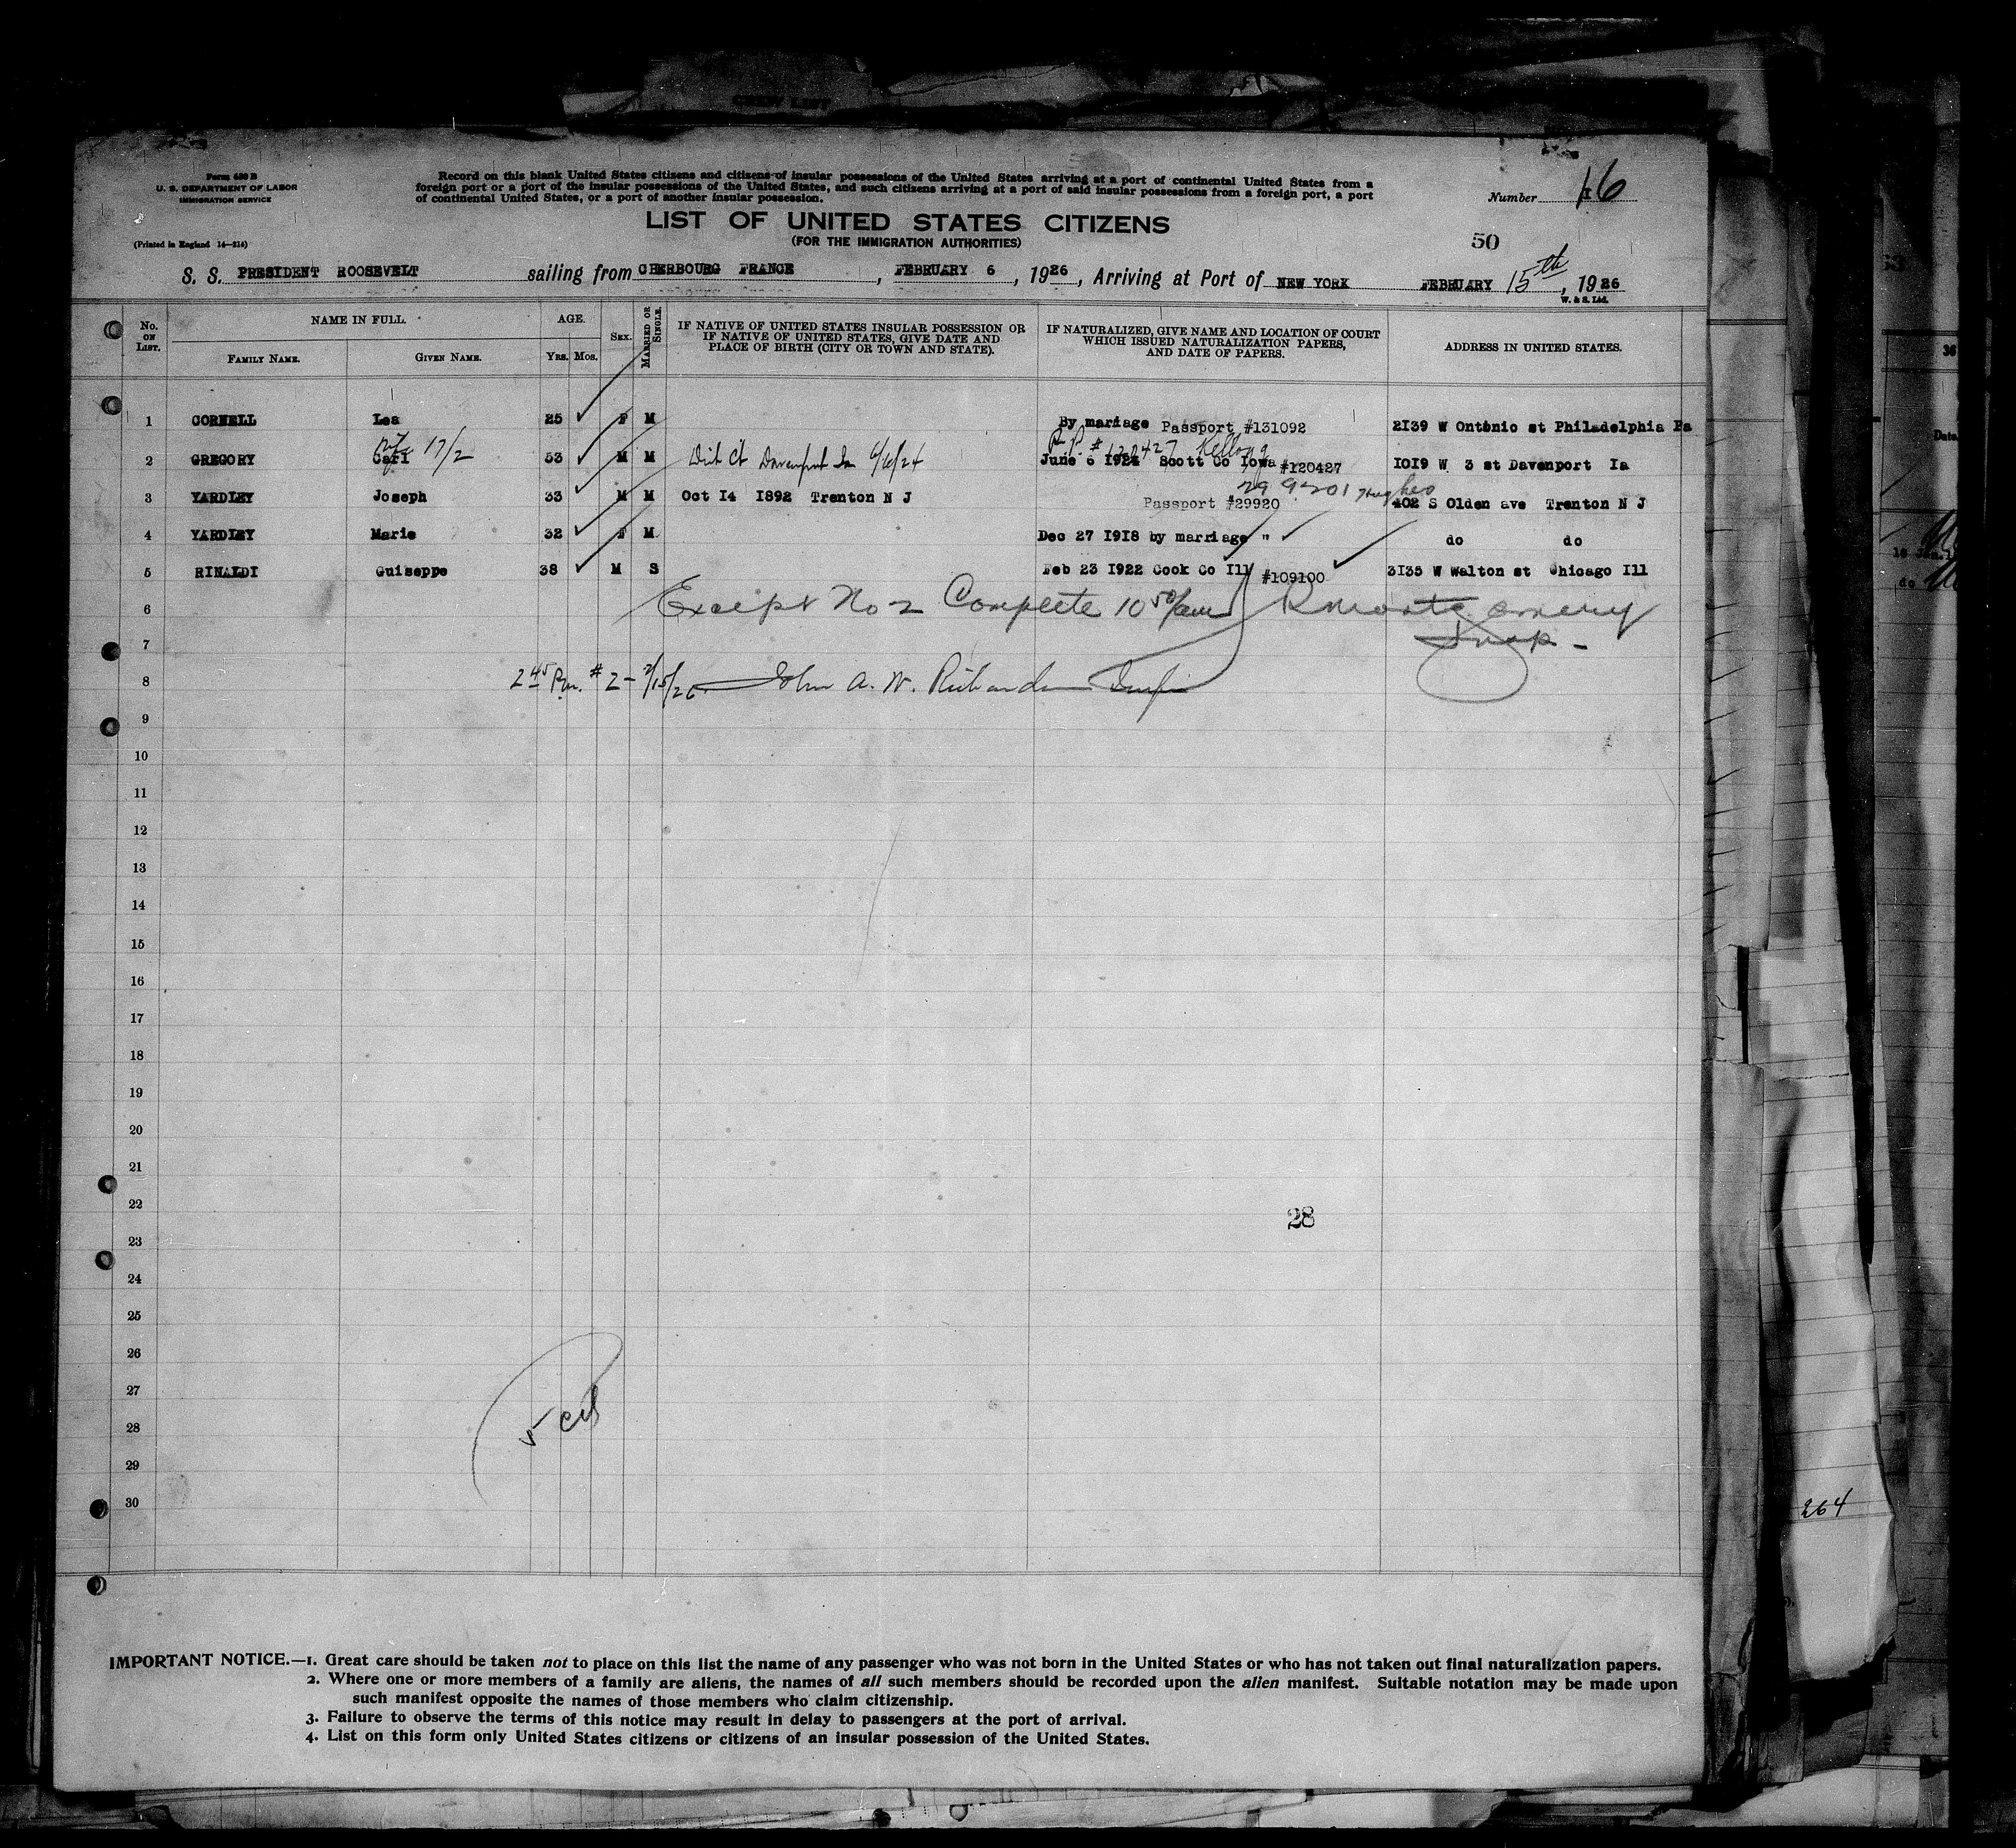 CREW LIST
Form 630 B
U. S. DEPARTMENT OF LABOR
IMMIGRATION SERVICE
(Printed in England 14—214)
Record on this blank United States citizens and citizens of insular possessions of the United States arriving at a port of continental United States from a
foreign port or a port of the insular possessions of the United States, and such citizens arriving at a port of said insular possessions from a foreign port, a port
of continental United States, or a port of another insular possession.
Number 16
LIST OF UNITED STATES CITIZENS
(FOR THE IMMIGRATION AUTHORITIES)
50
S. S. PRESIDENT ROOSEVELT sailing from CHERBOURG FRANCE, FEBRUARY 6, 1926, Arriving at Port of NEW YORK FEBRUARY 15th, 1926
W. & S. Ltd.
No. ON LIST. NAME IN FULL. FAMILY NAME. GIVEN NAME. AGE. YRS. MOS. SEX. MARRIED OR SINGLE.
IF NATIVE OF UNITED STATES INSULAR POSSESSION OR IF NATIVE OF UNITED STATES, GIVE DATE AND PLACE OF BIRTH (CITY OR TOWN AND STATE).
IF NATURALIZED, GIVE NAME AND LOCATION OF COURT WHICH ISSUED NATURALIZATION PAPERS, AND DATE OF PAPERS.
ADDRESS IN UNITED STATES.
1 CORNELL Lea 25 F M By mariage Passport #131092 2139 W Ontonio st Philadelphia Pa
17/2 #120427 Kellogg
2 GREGORY Carl 53 M M Dist Ct Davenport Ia 6/6/24 June 6 1924 Scott Co Iowa #120427 1019 W 3 st Davenport Ia
Hughes
3 YARDLEY Joseph 33 M M Oct 14 1892 Trenton N J Passport #29920 402 S Olden ave Trenton N J
4 YARDLEY Marie 32 F M Dec 27 1918 by marriage " do do
5 RINALDI Guiseppe 38 M S Feb 23 1922 Cook Co Ill #109100 3135 W Walton st Chicago Ill
6 Except No 2 Complete 10 50/am
7 Insp -
8 2 45 Pm. #2 - 2/15/26 John A. W. Richardson Insp
9
10
11
12
13
14
15
16
17
18
19
20
21
22
28
23
24
25
26
27
28 5 cit
29
30
264
IMPORTANT NOTICE.—1. Great care should be taken not to place on this list the name of any passenger who was not born in the United States or who has not taken out final naturalization papers.
2. Where one or more members of a family are aliens, the names of all such members should be recorded upon the alien manifest. Suitable notation may be made upon
such manifest opposite the names of those members who claim citizenship.
3. Failure to observe the terms of this notice may result in delay to passengers at the port of arrival.
4. List on this form only United States citizens or citizens of an insular possession of the United States.